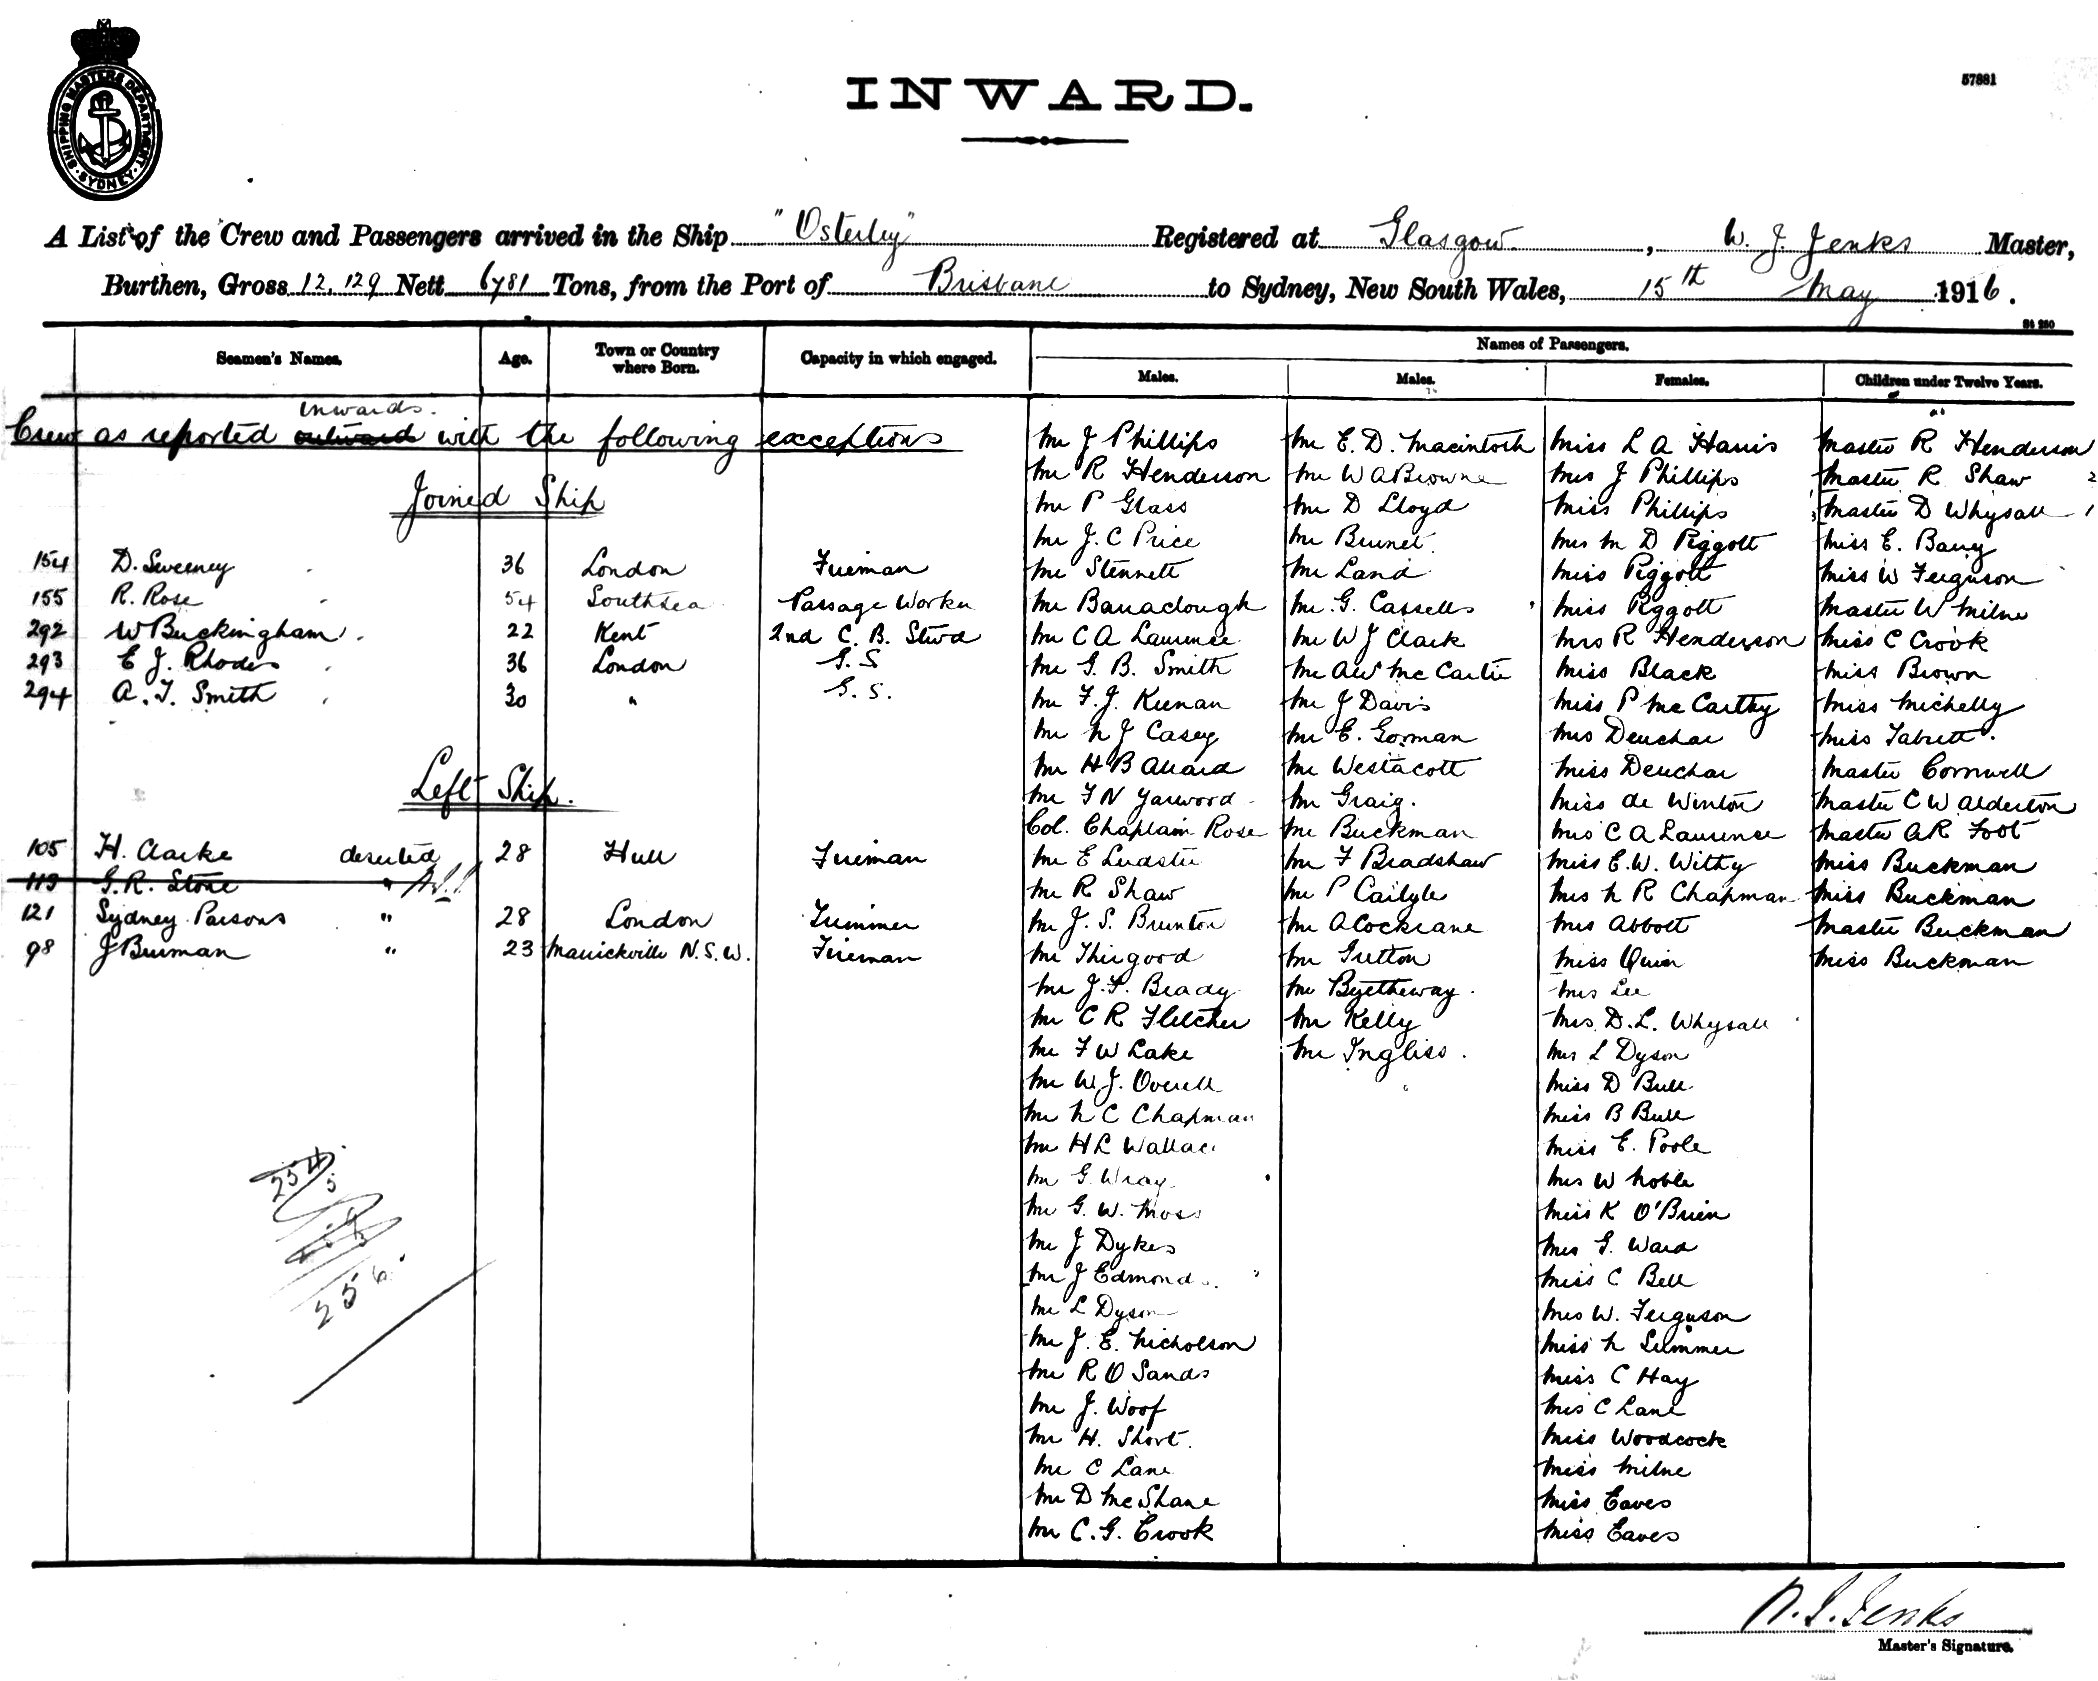 SHIPPING MASTERS DEPARTMENT
SYDNEY
57881
INWARD.
A List of the Crew and Passengers arrived in the Ship "Osterley" Registered at Glasgow, W. J. Jenks Master,
Burthen, Gross 12,129 Nett 6781 Tons, from the Port of Brisbane to Sydney, New South Wales, 15th May 1916.
St 260
Seamen's Names.
Age.
Town or Country where Born.
Capacity in which engaged.
Names of Passengers.
Males.
Males.
Females.
Children under Twelve Years.
inwards.
Crew as reported outward with the following exceptions
Joined Ship
154 D. Sweeney 36 London Fireman
155 R. Rose 54 Southsea Passage Worker
292 W Buckingham 22 Kent 2nd C. B. Stwd
293 E J. Rhodes 36 London G. S
294 A. T. Smith 30 " G. S.
Left Ship.
105 H. Clarke deserted 28 Hull Fireman
113 G. R. Stone "
121 Sydney Parsons " 28 London Trimmer
98 J Burman " 23 Marrickville N.S.W. Fireman
254
5
256.
Mr J Phillips
Mr R Henderson
Mr P Glass
Mr J. C Price
Mr Stennett
Mr Barraclough
Mr C A Laurence
Mr G. B. Smith
Mr F. J. Keenan
Mr N J Casey
Mr H B Allard
Mr F N Yarwood
Col. Chaplain Rose
Mr E Ludster
Mr R Shaw
Mr J. S. Brunton
Mr Thirgood
Mr J. F. Brady
Mr C R Fletcher
Mr F W Lake
Mr W. J. Overell
Mr N C Chapman
Mr H L Wallace
Mr G. Wray
Mr G. W. Moss
Mr J Dykes
Mr J Edmonds
Mr L Dyson
Mr J. E. Nicholson
Mr R O Sands
Mr J. Woof
Mr H. Short.
Mr C Lane
Mr D McShane
Mr C. G. Crook
Mr E. D. Macintosh
Mr W A Browne
Mr D Lloyd
Mr Brunet
Mr Land
Mr G. Cassells
Mr W J Clark
Mr A W McCartie
Mr J Davis
Mr E. Gorman
Mr Westacott
Mr Graig.
Mr Buckman
Mr F Bradshaw
Mr P Carlyle
Mr A Cockrane
Mr Gretton
Mr Byetheway.
Mr Kelly
Mr Ingliss.
Miss L A Harris
Mrs J Phillips
Miss Phillips
Mrs M D Piggott
Miss Piggott
Miss Piggott
Mrs R Henderson
Miss Black
Miss P McCarthy
Mrs Deuchar
Miss Deuchar
Miss de Winton
Mrs C A Laurence
Miss E. W. Withy
Mrs N R Chapman
Mrs Abbott
Miss Quin
Mrs Lee
Mrs D. L. Whysall
Mrs L Dyson
Miss D Bull
Miss B Bull
Miss E. Poole
Mrs W Noble
Miss K O'Brien
Mrs G. Ward
Miss C Bell
Mrs W. Ferguson
Miss N Summer
Miss C Hay
Mrs C Lane
Miss Woodcock
Miss Milne
Miss Eaves
Miss Eaves
Master R Henderson
Master R Shaw 2
Master D Whysall 1
Miss E. Barry
Miss W Ferguson
Master W Milne
Miss C Crook
Miss Brown
Miss Michelly
Miss Tabrett.
Master Cornwell
Master C W Alderton
Master A R Foot
Miss Buckman
Miss Buckman
Master Buckman
Miss Buckman
W. J. Jenks
Master's Signature.